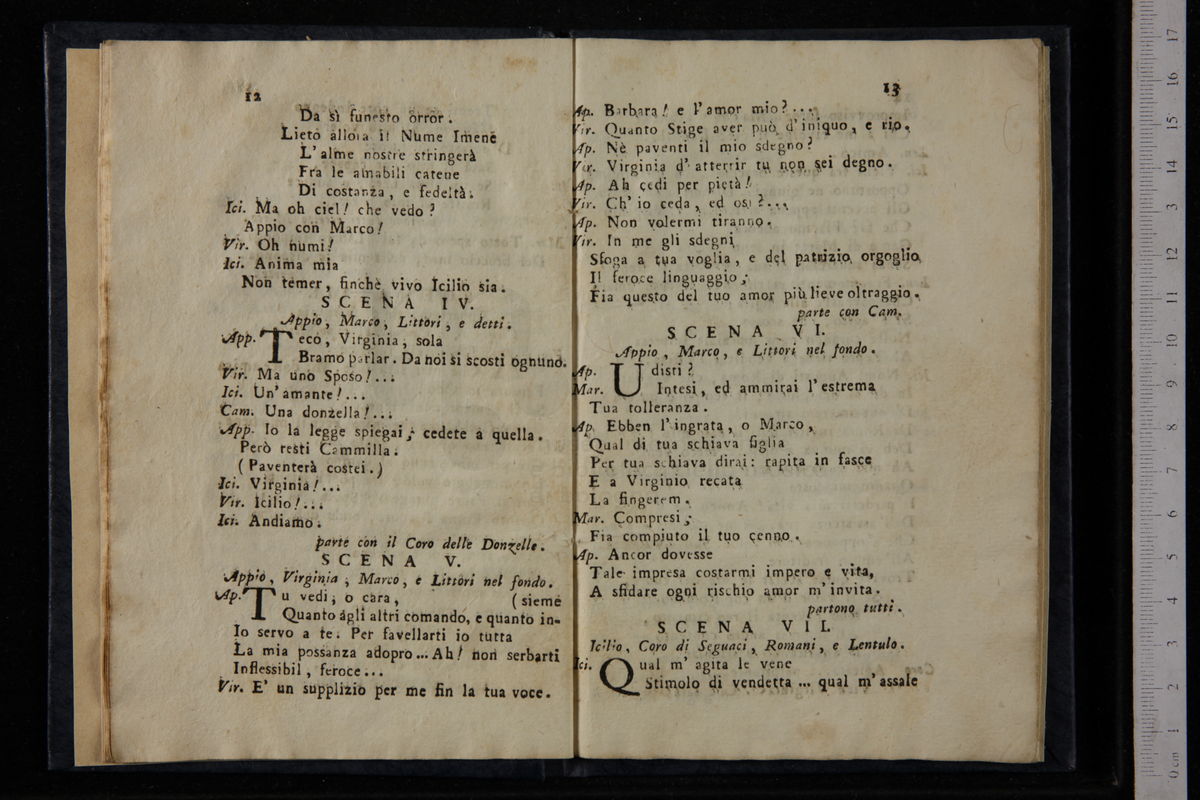 12
Da sì funesto orror.
Lieto allora il Nume Imene
L' alme nostre stringerà
Fra le amabili catene
Di costanza, e fedeltà.
Ici. Ma oh ciel! che vedo?
Appio con Marco!
Vir. Oh numi!
Ici. Anima mia
Non temer, finchè vivo Icilio sia.
SCENA IV.
Appio, Marco, Littori, e detti.
App. Teco, Virginia, sola
Bramo parlar. Da noi si scosti ognuno.
Vir. Ma uno Sposo!...
Ici. Un' amante!...
Cam. Una donzella!...
App. Io la legge spiegai; cedete a quella.
Però resti Cammilla.
(Paventerà costei.)
Ici. Virginia!...
Vir. Icilio!...
Ici. Andiamo.
parte con il Coro delle Donzelle.
SCENA V.
Appio, Virginia, Marco, e Littori nel fondo.
Ap. Tu vedi, o cara, (sieme
Quanto agli altri comando, e quanto in-
Io servo a te. Per favellarti io tutta
La mia possanza adopro... Ah! non serbarti
Inflessibil, feroce...
Vir. E' un supplizio per me fin la tua voce.
13
Ap. Barbara! e l' amor mio?...
Vir. Quanto Stige aver può d' iniquo, e rio.
Ap. Nè paventi il mio sdegno?
Vir. Virginia d' atterrir tu non sei degno.
Ap. Ah cedi per pietà!
Vir. Ch' io ceda, ed osi?...
Ap. Non volermi tiranno.
Vir. In me gli sdegni
Sfoga a tua voglia, e del patrizio orgoglio
Il feroce linguaggio;
Fia questo del tuo amor più lieve oltraggio.
parte con Cam.
SCENA VI.
Appio, Marco, e Littori nel fondo.
Ap. Udisti?
Mar. Intesi, ed ammirai l' estrema
Tua tolleranza.
Ap. Ebben l' ingrata, o Marco,
Qual di tua schiava figlia
Per tua schiava dirai: rapita in fasce
E a Virginio recata
La fingerem.
Mar. Compresi;
Fia compiuto il tuo cenno.
Ap. Ancor dovesse
Tale impresa costarmi impero e vita,
A sfidare ogni rischio amor m' invita.
partono tutti.
SCENA VII.
Icilio, Coro di Seguaci, Romani, e Lentulo.
Ici. Qual m' agita le vene
Stimolo di vendetta ... qual m' assale